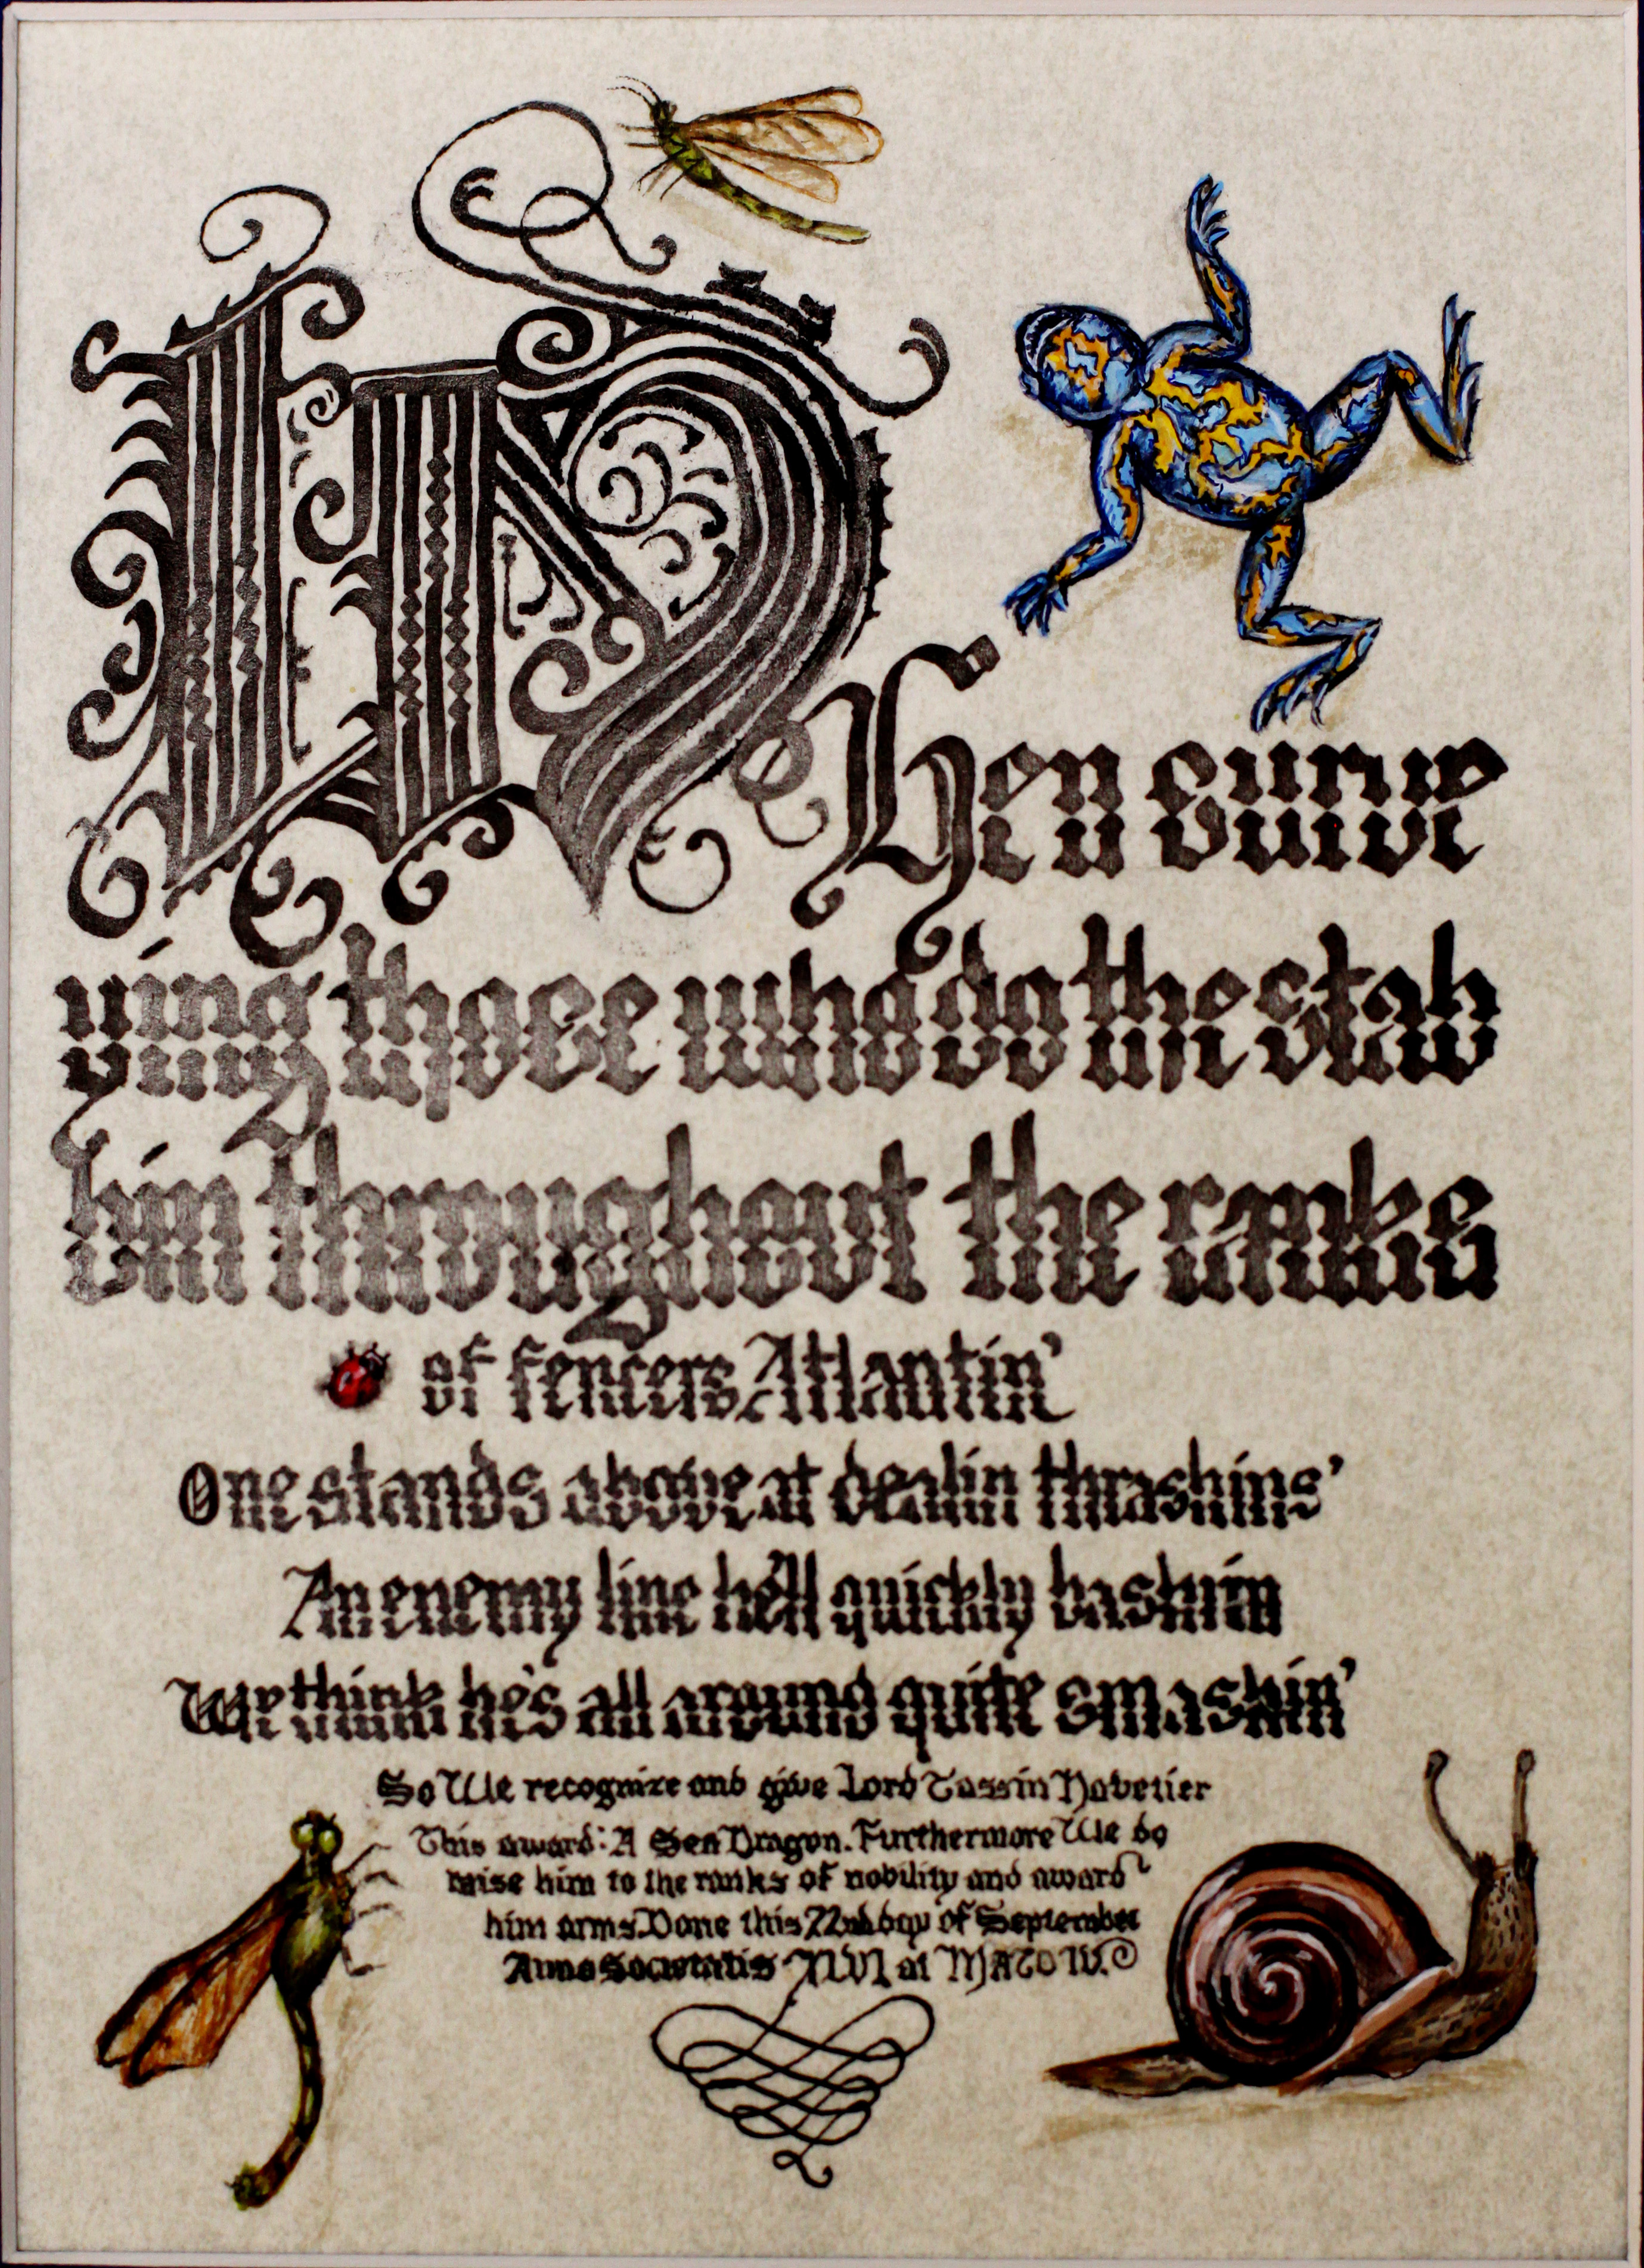 WHen surve
ying those who do the stab
bin throughout the ranks
of fencers Atlantin'
One stands above at dealin thrashins'
An enemy line he'll quickly bashin
We think he's all around quite smashin'
So We recognize and give Lord Tassin
This award: A Sea Dragon. Furthermore We do
raise him to the ranks of nobility and award
him arms Done this 22nd day of September
Anno Societatis at